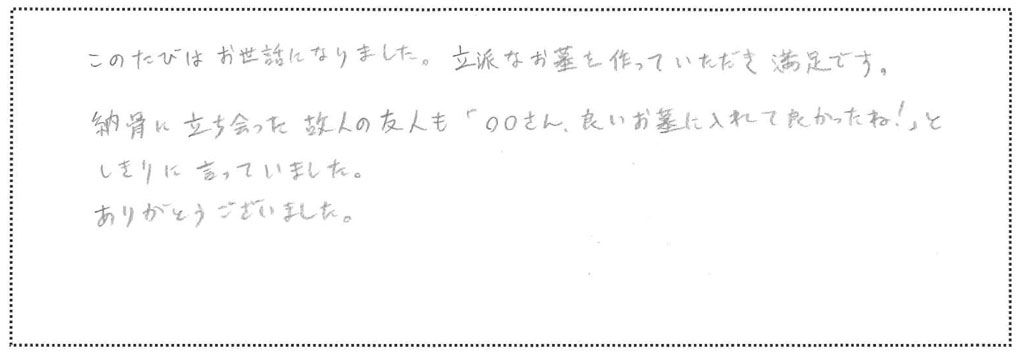 このたびはお世話になりました。立派なお墓を作っていただき満足です。
納骨に立ち会った故人の友人も「○○さん、良いお墓に入れて良かったね!」と
しきりに言っていました。
ありがとうございました。